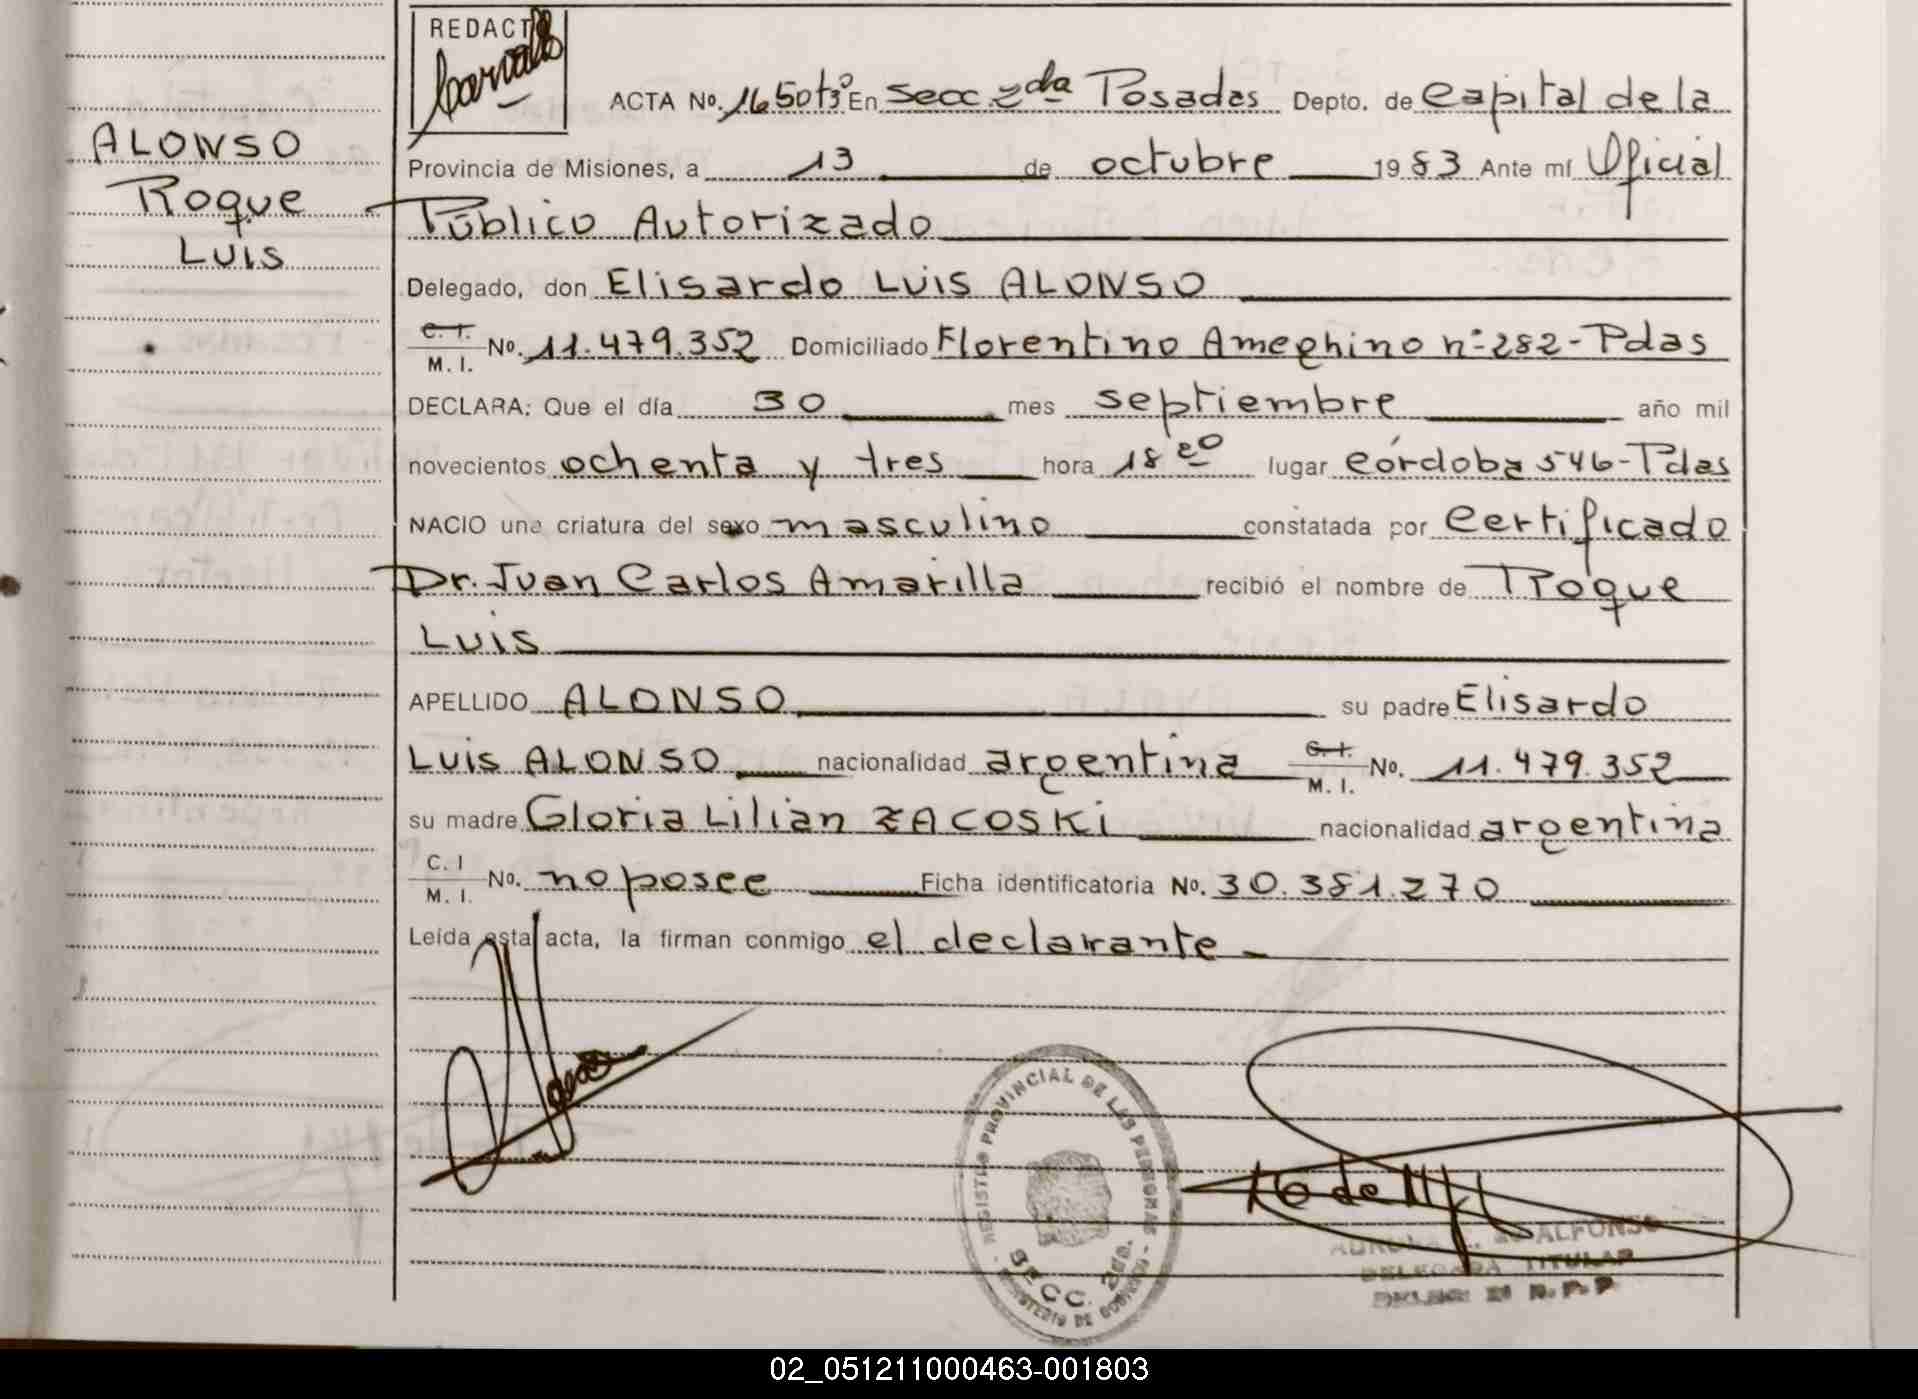 REDACT
ALONSO
Roque
Luis
ACTA No. 1650 tº 3º En Secc. 2da Posadas Depto. de Capital de la
Provincia de Misiones, a 13 de octubre 1983 Ante mí Oficial
Público Autorizado
Delegado, don Elisardo Luis ALONSO
C. I.
M. I. No. 11.479.352 Domiciliado Florentino Ameghino nº 282 - Pdas
DECLARA: Que el día 30 mes septiembre año mil
novecientos ochenta y tres hora 18 20 lugar Córdoba 546 - Pdas
NACIO una criatura del sexo masculino constatada por Certificado
Dr. Juan Carlos Amarilla recibió el nombre de Roque
Luis
APELLIDO ALONSO su padre Elisardo
Luis ALONSO nacionalidad argentina C. I. M. I. No. 11.479.352
su madre Gloria Lilian ZACOSKI nacionalidad argentina
C. I
M. I. No. no posee Ficha identificatoria No. 30.381.270
Leída esta acta, la firman conmigo el declarante -
REGISTRO PROVINCIAL DE LAS PERSONAS
SECC. 2da.
MINISTERIO DE GOBIERNO
ALFONSO
DELEGADA TITULAR
R. P. P
02_051211000463-001803